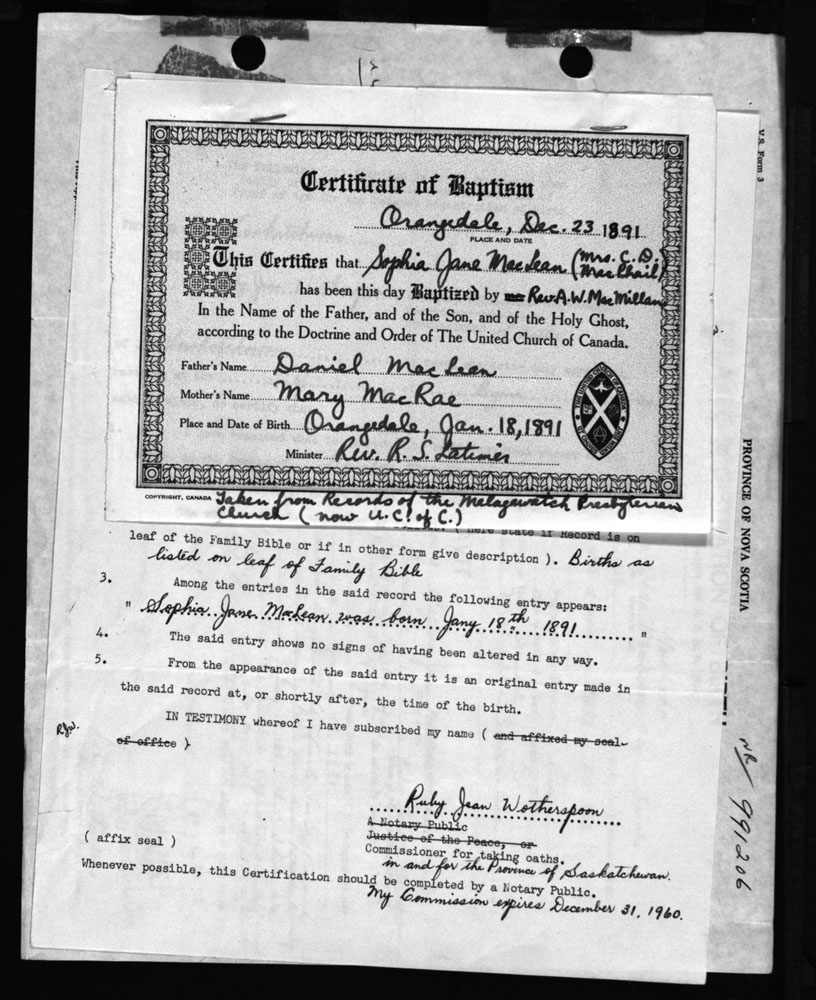 Certificate of Baptism
Orangedale, Dec. 23 1891
PLACE AND DATE
This Certifies that Sophia Jane MacLean (Mrs. C. D. MacPhail)
has been this day Baptized by Rev. A. W. MacMillan
In the Name of the Father, and of the Son, and of the Holy Ghost,
according to the Doctrine and Order of The United Church of Canada.
Father's Name Daniel MacLean
Mother's Name Mary MacRae
Place and Date of Birth Orangedale, Jan. 18, 1891
Minister Rev. R. S. Latimer
COPYRIGHT, CANADA
Taken from Records of the Malagawatch Presbyterian
Church (now U.C. of C.)
( here state if Record is on
leaf of the Family Bible or if in other form give description ). Births as
listed on leaf of Family Bible
3. Among the entries in the said record the following entry appears:
" Sophia Jane MacLean was born Jany 18th 1891 "
4. The said entry shows no signs of having been altered in any way.
5. From the appearance of the said entry it is an original entry made in
the said record at, or shortly after, the time of the birth.
IN TESTIMONY whereof I have subscribed my name ( and affixed my seal
of office )
R.J.W.
Ruby Jean Wotherspoon
A Notary Public
Justice of the Peace, or
Commissioner for taking oaths.
in and for the Province of Saskatchewan.
( affix seal )
Whenever possible, this Certification should be completed by a Notary Public.
My Commission expires December 31, 1960.
V.S. Form 3
PROVINCE OF NOVA SCOTIA
991206